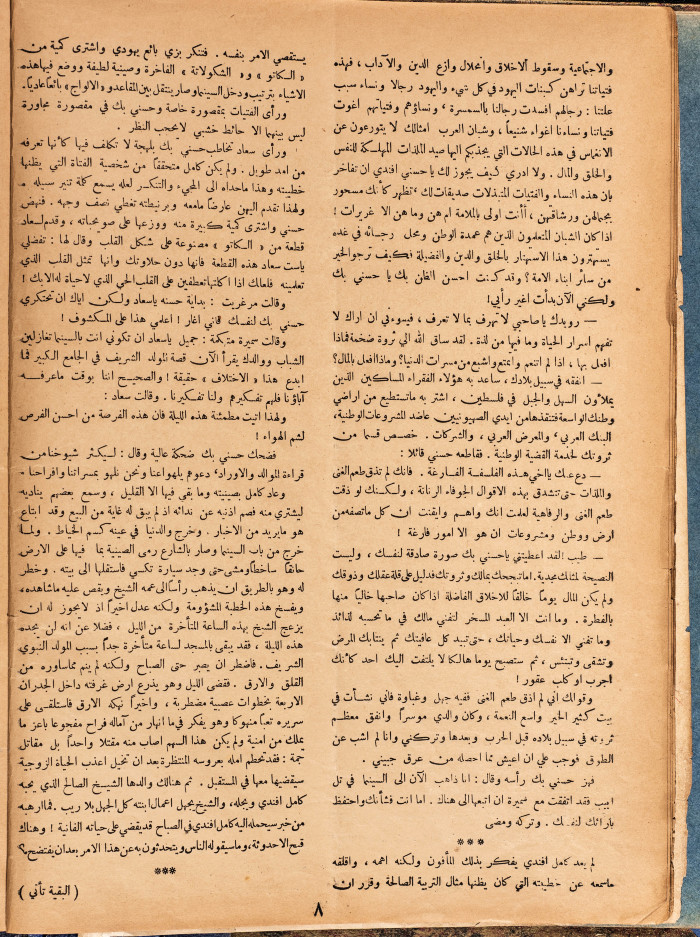 والاجتماعية وسقوط الاخلاق وانحلال وازع الدين والآداب ، فهذه
فتياتنا تراهن كبنات اليهود في كل شيء واليهود رجالا ونساء سبب
علتنا : رجالهم افسدت رجالنا بالسمسرة ، ونساؤهم وفتياتهم اغوت
فتياتنا ونساءنا اغواء شنيعاً ، وشبان العرب امثالك لا يتورعون عن
الانغماس في هذه الحالات التي يجذبكم اليها صيد الملذات المهلكة للنفس
والخلق والمال . ولا ادري كيف يجوز لك يا حسني افندي ان تفاخر
بان هذه النساء والفتيات المتبذلات صديقات لك ' تظهر كأنك مسحور
بجمالهن ورشاقتهن ، أأنت اولى بالملامة ام هن وما هن الا غريرات !
اذا كان الشبان المتعلمون الذين هم عمدة الوطن ومحل رجائه في غده
يستهترون هذا الاستهتار بالخلق والدين والفضيلة فكيف نرجو الخير
من سائر ابناء الامة ؟ وقد كنت احسن الظن بك يا حسني بك
ولكني الآن بدأت اغير رأيي!
— رويدك يا صاحبي لا تهرف بما لا تعرف ، فيسوءني ان اراك لا
تفهم اسرار الحياة وما فيها من لذة . لقد ساق الله الي ثروة ضخمة فماذا
افعل بها ، اذا لم اتنعم واتمتع واشبع من مسرات الدنيا؟ وماذا افعل بالمال؟
— انفقه في سبيل بلادك ، ساعد به هؤلاء الفقراء المساكين الذين
يملأون السهل والجبل في فلسطين ، اشتر به ما تستطيع من اراضي
وطنك الواسعة فتنقذها من ايدي الصهيونيين عاضد المشروعات الوطنية،
البنك العربي ' والمعرض العربي ، والشركات . خصص قسما من
ثروتك لخدمة القضية الوطنية . فقاطعه حسني قائلا :
— دع عنك يا اخي هذه الفلسفة الفارغة . فانك لم تذق طعم الغنى
والملذات حتى تتشدق بهذه الاقوال الجوفاء الرنانة ، ولكنك لو ذقت
طعم الغنى والرفاهية لعلمت انك واهم وايقنت ان كل ما تصفه من
ارض ووطن ومشروعات ان هو الا امور فارغة !
— طيب ! لقد اعطيتني يا حسني بك صورة صادقة لنفسك ، وليست
النصيحة لمثلك مجدية . اما تبجحك بمالك وثروتك فدليل على قلة عقلك وذوقك
ولم يكن المال يوماً خالقاً للاخلاق الفاضلة اذا كان صاحبها خالياً منها
بالفطرة . وما انت الا العبد المسخر لتفني مالك في ما تحسبه لذائذ
وما تفني الا نفسك وحياتك ، حتى تبيد كل عافيتك ثم ينتابك المرض
وتشقى وتبتئس ، ثم ستصبح يوما هالكا لا يلتفت اليك احد كأنك
اجرب او كلب عقور !
وقولك اني لم اذق طعم الغنى ففيه جهل وغباوة فاني نشأت في
بيت كثير الخير واسع النعمة ، وكان والدي موسراً وانفق معظم
ثروته في سبيل بلاده قبل الحرب وبعدها وتركني وانا لم اشب عن
الطوق فوجب علي ان اعيش مما احصله من عرق جبيني .
فهز حسني بك رأسه وقال : انا ذاهب الآن الى السينما في تل
ابيب فقد اتفقت مع سميرة ان اتبعها الى هناك . اما انت فشأنك واحتفظ
بآرائك لنفسك . وتركه ومضى
***
لم يعد كامل افندي يفكر بذلك المأفون ولكنه اهمه ، واقلقه
ما سمعه عن خطيبته التي كان يظنها مثال التربية الصالحة وقرر ان
يستقصي الامر بنفسه . فتنكر بزي بائع يهودي واشترى كمية من
« السكاتو » و« الشكولاتة » الفاخرة وصينية لطيفة ووضع فيها هذه
الاشياء بترتيب ودخل السينما وصار يتنقل بين المقاعد و« الالواج » بائعاً عادياً.
ورأى الفتيات بمقصورة خاصة وحسني بك في مقصورة مجاورة
ليس بينهما الا حائط خشبي لا يحجب النظر .
ورأى سعاد تخاطب حسني بك بلهجة لا تكلف فيها كأنها تعرفه
من امد طويل . ولم يكن كامل متحققاً من شخصية الفتاة التي يظنها
خطيبته وهذا ما حداه الى المجيء والتنكر لعله يسمع كلمة تنير سبيله .
ولهذا تقدم اليهن عارضاً ما معه وبرنيطته تغطي نصف وجهه . فنهض
حسني واشترى كمية كبيرة منه ووزعها على صويحباته ، وقدم لسعاد
قطعة من « السكاتو » مصنوعة على شكل القلب وقال لها : تفضلي
يا ست سعاد هذه القطعة فانها دون حلاوتك وانها تمثل القلب الذي
تعلمينه فلعلك اذا اكلتها تعطفين على القلب الحي الذي لا حياة له الا بك !
وقالت مرغريت : بداية حسنه يا سعاد ولكن اياك ان تحتكري
حسني بك لنفسك فاني اغار ! اعلمي هذا على المكشوف !
وقالت سميرة متهكمة : جميل يا سعاد ان تكوني انت بالسينما تغازلين
الشباب ووالدك يقرأ الآن قصة المولد الشريف في الجامع الكبير فما
ابدع هذا « الاختلاف » حقيقة ! والصحيح اننا بوقت ما عرفه
آباؤنا فلهم تفكيرهم ولنا تفكيرنا . وقالت سعاد :
ولهذا اتيت مطمئنة هذه الليلة فان هذه الفرصة من احسن الفرص
لشم الهواء !
فضحك حسني بك ضحكة عالية وقال : ليكثر شيوخنا من
قراءة الموالد والاوراد ' دعوهم يلهوا عنا ونحن نلهو بمسراتنا وافراحنا .
وعاد كامل بصينيته وما بقي فيها الا القليل ، وسمع بعضهم يناديه
ليشتري منه فصم اذنيه عن ندائه اذ لم يبق له غاية من البيع وقد ابتاع
هو ما يريد من الاخبار . وخرج والدنيا في عينه كسم الخياط . ولما
خرج من باب السينما وصار بالشارع رمى الصينية بما فيها على الارض
حانقاً ساخطاً ومشى حتى وجد سيارة تكسي فاستقلها الى بيته . وخطر
له وهو بالطريق ان يذهب رأساً الى عمه الشيخ ويقص عليه ما شاهده،
ويفسخ هذه الخطبة المشؤومة ولكنه عدل اخيراً اذ لا يجوز له ان
يزعج الشيخ بهذه الساعة المتأخرة من الليل ، فضلا عن انه لن يجده
هذه الليلة ، فقد يبقى بالمسجد لساعة متأخرة جداً بسبب المولد النبوي
الشريف . فاضطر ان يصبر حتى الصباح ولكنه لم ينم مما ساوره من
القلق والارق . فقضى الليل وهو يذرع ارض غرفته داخل الجدران
الاربعة بخطوات عصبية مضطربة ، واخيراً نهكه الارق فاستلقى على
سريره تعباً منهوكا وهو يفكر في ما انهار من آماله فراح مفجوعا باعز ما
يملك من امنية ولم يكن هذا السهم اصاب منه مقتلا واحداً بل مقاتل
جمة : فقد تحطم امله بعروسه المنتظرة بعد ان تخيل اعذب الحياة الزوجية
سيقضيها معها في المستقبل . ثم هنالك والدها الشيخ الصالح الذي يحبه
كامل افندي ويجله ، والشيخ يجهل اعمال ابنته كل الجهل بلا ريب . فما ارهبه
من خبر سيحمله اليه كامل افندي في الصباح قد يقضي على حياته الفانية ! وهناك
قبح الاحدوثة ، وما سيقوله الناس ويتحدثون به عن هذا الامر بعد ان يفتضح؟
***
( البقية تأتي )
٨